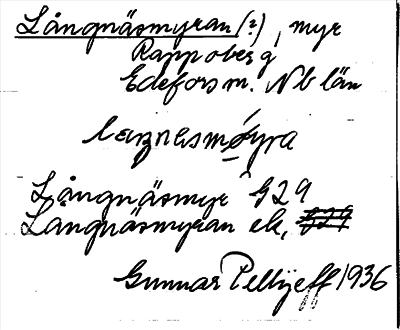 Långnäsmyran (?), myr
Rappoberg
Edefors m. Nb län
Långnäsmyr G29
Långnäsmyran ek,
Gunnar Pellijeff 1936